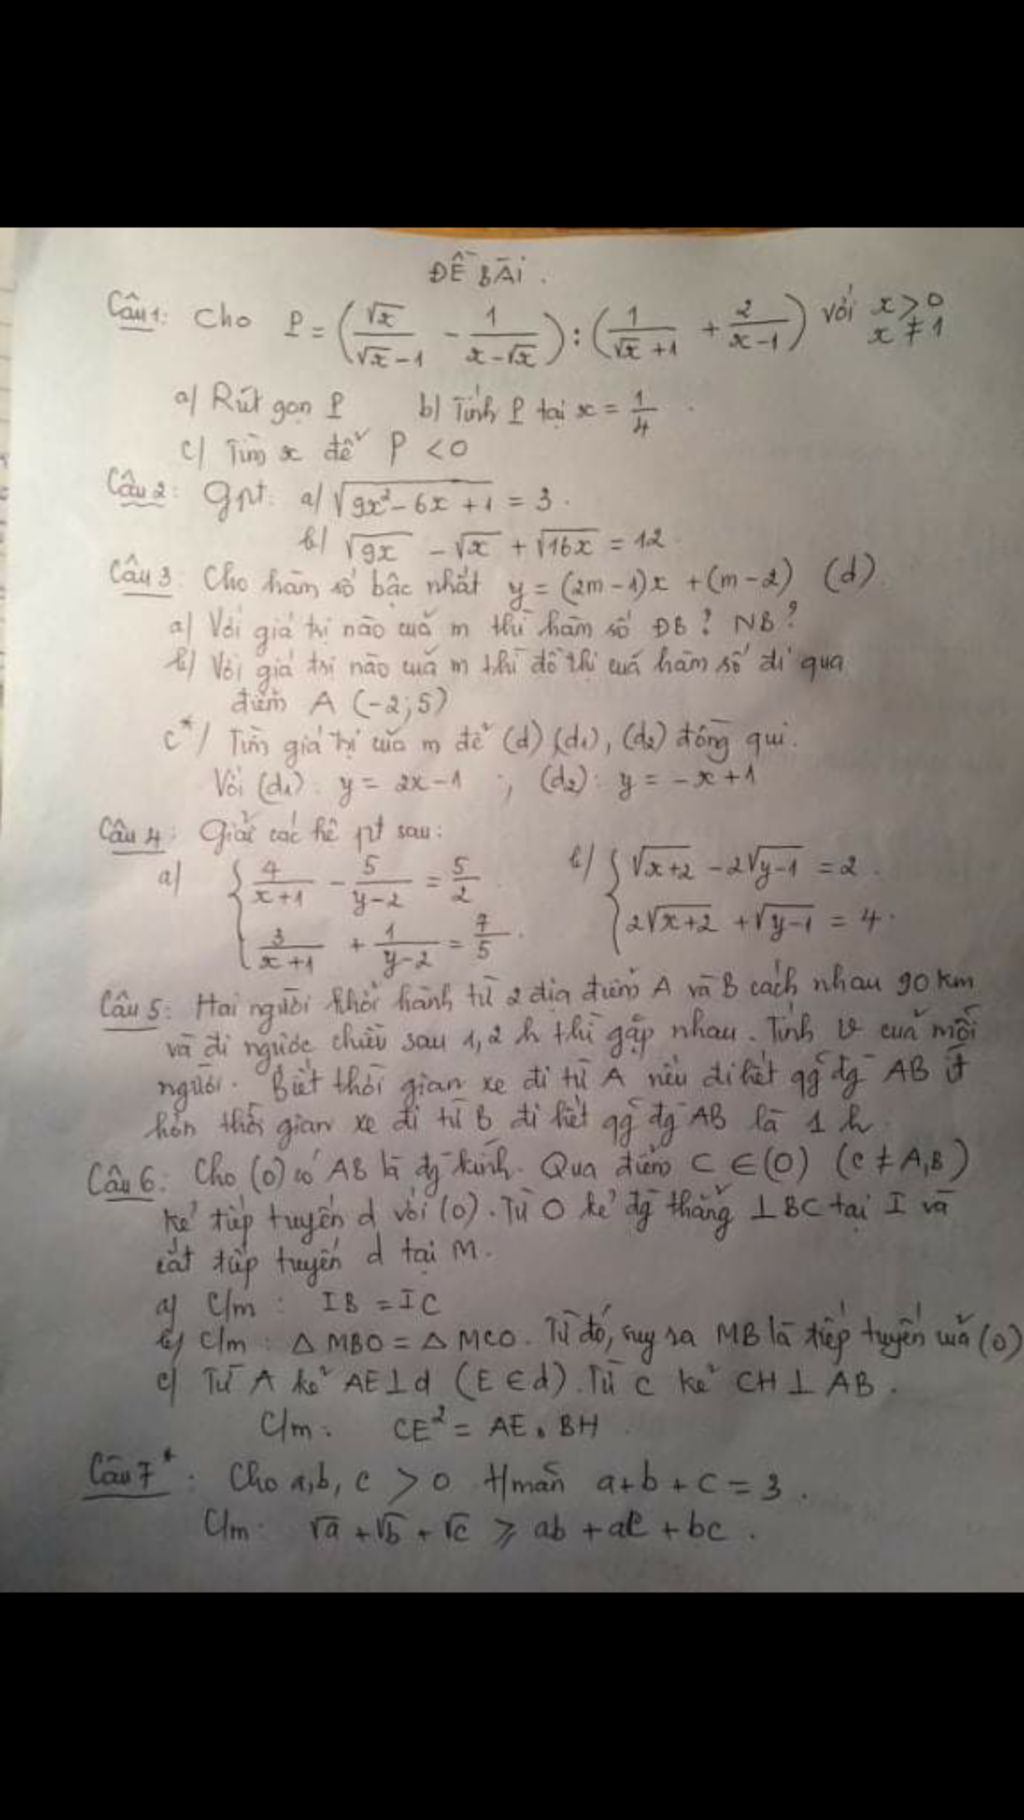 ĐỀ BÀI.
Câu 1: Cho P = (√x/(√x-1) - 1/(x-√x)) : (1/(√x+1) + 2/(x-1)) với x>0 x≠1
a/ Rút gọn P b/ Tính P tại x = 1/4.
c/ Tìm x để P < 0
Câu 2: Gpt: a/ √(9x²-6x+1) = 3.
b/ √9x - √x + √16x = 12.
Câu 3: Cho hàm số bậc nhất y = (2m-1)x + (m-2) (d).
a/ Với giá trị nào của m thì hàm số ĐB? NB?
b/ Với giá trị nào của m thì đồ thị của hàm số đi qua
điểm A (-2;5)
c*/ Tìm giá trị của m để (d) (d1), (d2) đồng qui.
Với (d1): y = 2x-1 ; (d2): y = -x+1
Câu 4: Giải các hệ pt sau:
a/ { 4/(x+1) - 5/(y-2) = 5/2 b/ { √(x+2) - 2√(y-1) = 2.
3/(x+1) + 1/(y-2) = 7/5. 2√(x+2) + √(y-1) = 4.
Câu 5: Hai người khởi hành từ 2 địa điểm A và B cách nhau 90 km
và đi ngược chiều sau 1,2 h thì gặp nhau. Tính v của mỗi
người. Biết thời gian xe đi từ A nếu đi hết qg đg AB ít
hơn thời gian xe đi từ B đi hết qg đg AB là 1 h
Câu 6: Cho (O) có AB là đg kính. Qua điểm C ∈ (O) (C ≠ A,B)
kẻ tiếp tuyến d với (O). Từ O kẻ đg thẳng ⊥ BC tại I và
cắt tiếp tuyến d tại M.
a/ C/m: IB = IC
b/ C/m: △ MBO = △ MCO. Từ đó, suy ra MB là tiếp tuyến của (O)
c/ Từ A kẻ AE ⊥ d (E ∈ d). Từ C kẻ CH ⊥ AB.
C/m: CE² = AE.BH
Câu 7*: Cho a,b,c > 0 t/mãn a+b+c = 3.
C/m: √a + √b + √c ≥ ab + ac + bc.